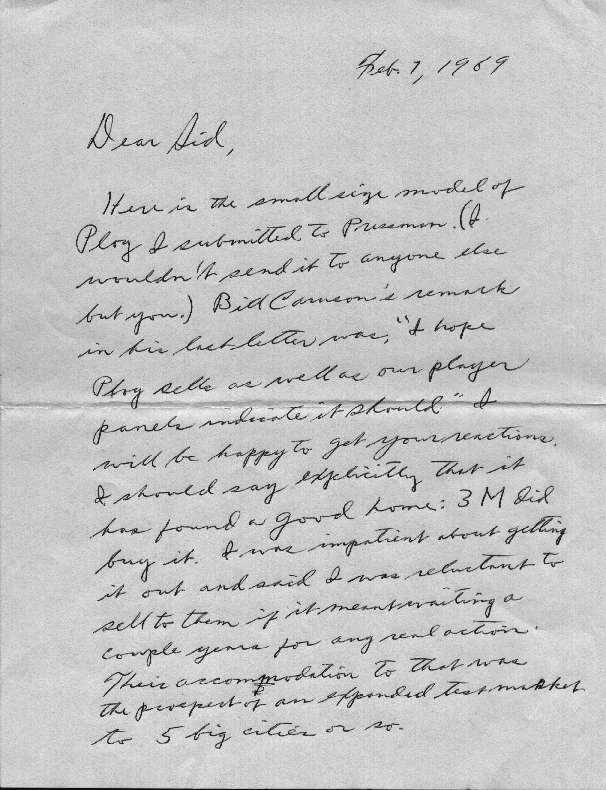 Feb. 7, 1969
Dear Sid,
Here is the small size model of
Ploy I submitted to Pressman. (I
wouldn't send it to anyone else
but you.) Bill Caruson's remark
in his last letter was, "I hope
Ploy sells as well as our player
panels indicate it should." I
will be happy to get your reactions.
I should say explicitly that it
has found a good home: 3M did
buy it. I was impatient about getting
it out and said I was reluctant to
sell to them if it meant waiting a
couple years for any real action.
Their accommodation to that was
the prospect of an expanded test market
to 5 big cities or so.